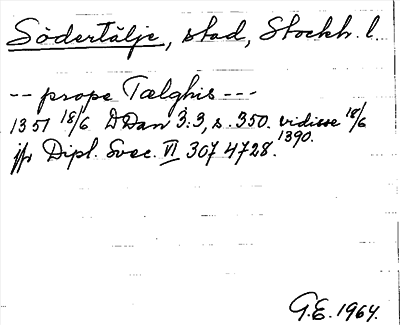 Södertälje, stad, Stockh. l.
-- prope Tælghis ---
1351 18/6 DDan 3:3, s. 350. vidisse 18/6 1390.
jfr Dipl. Svec. VI 307 4728.
G.E. 1964.